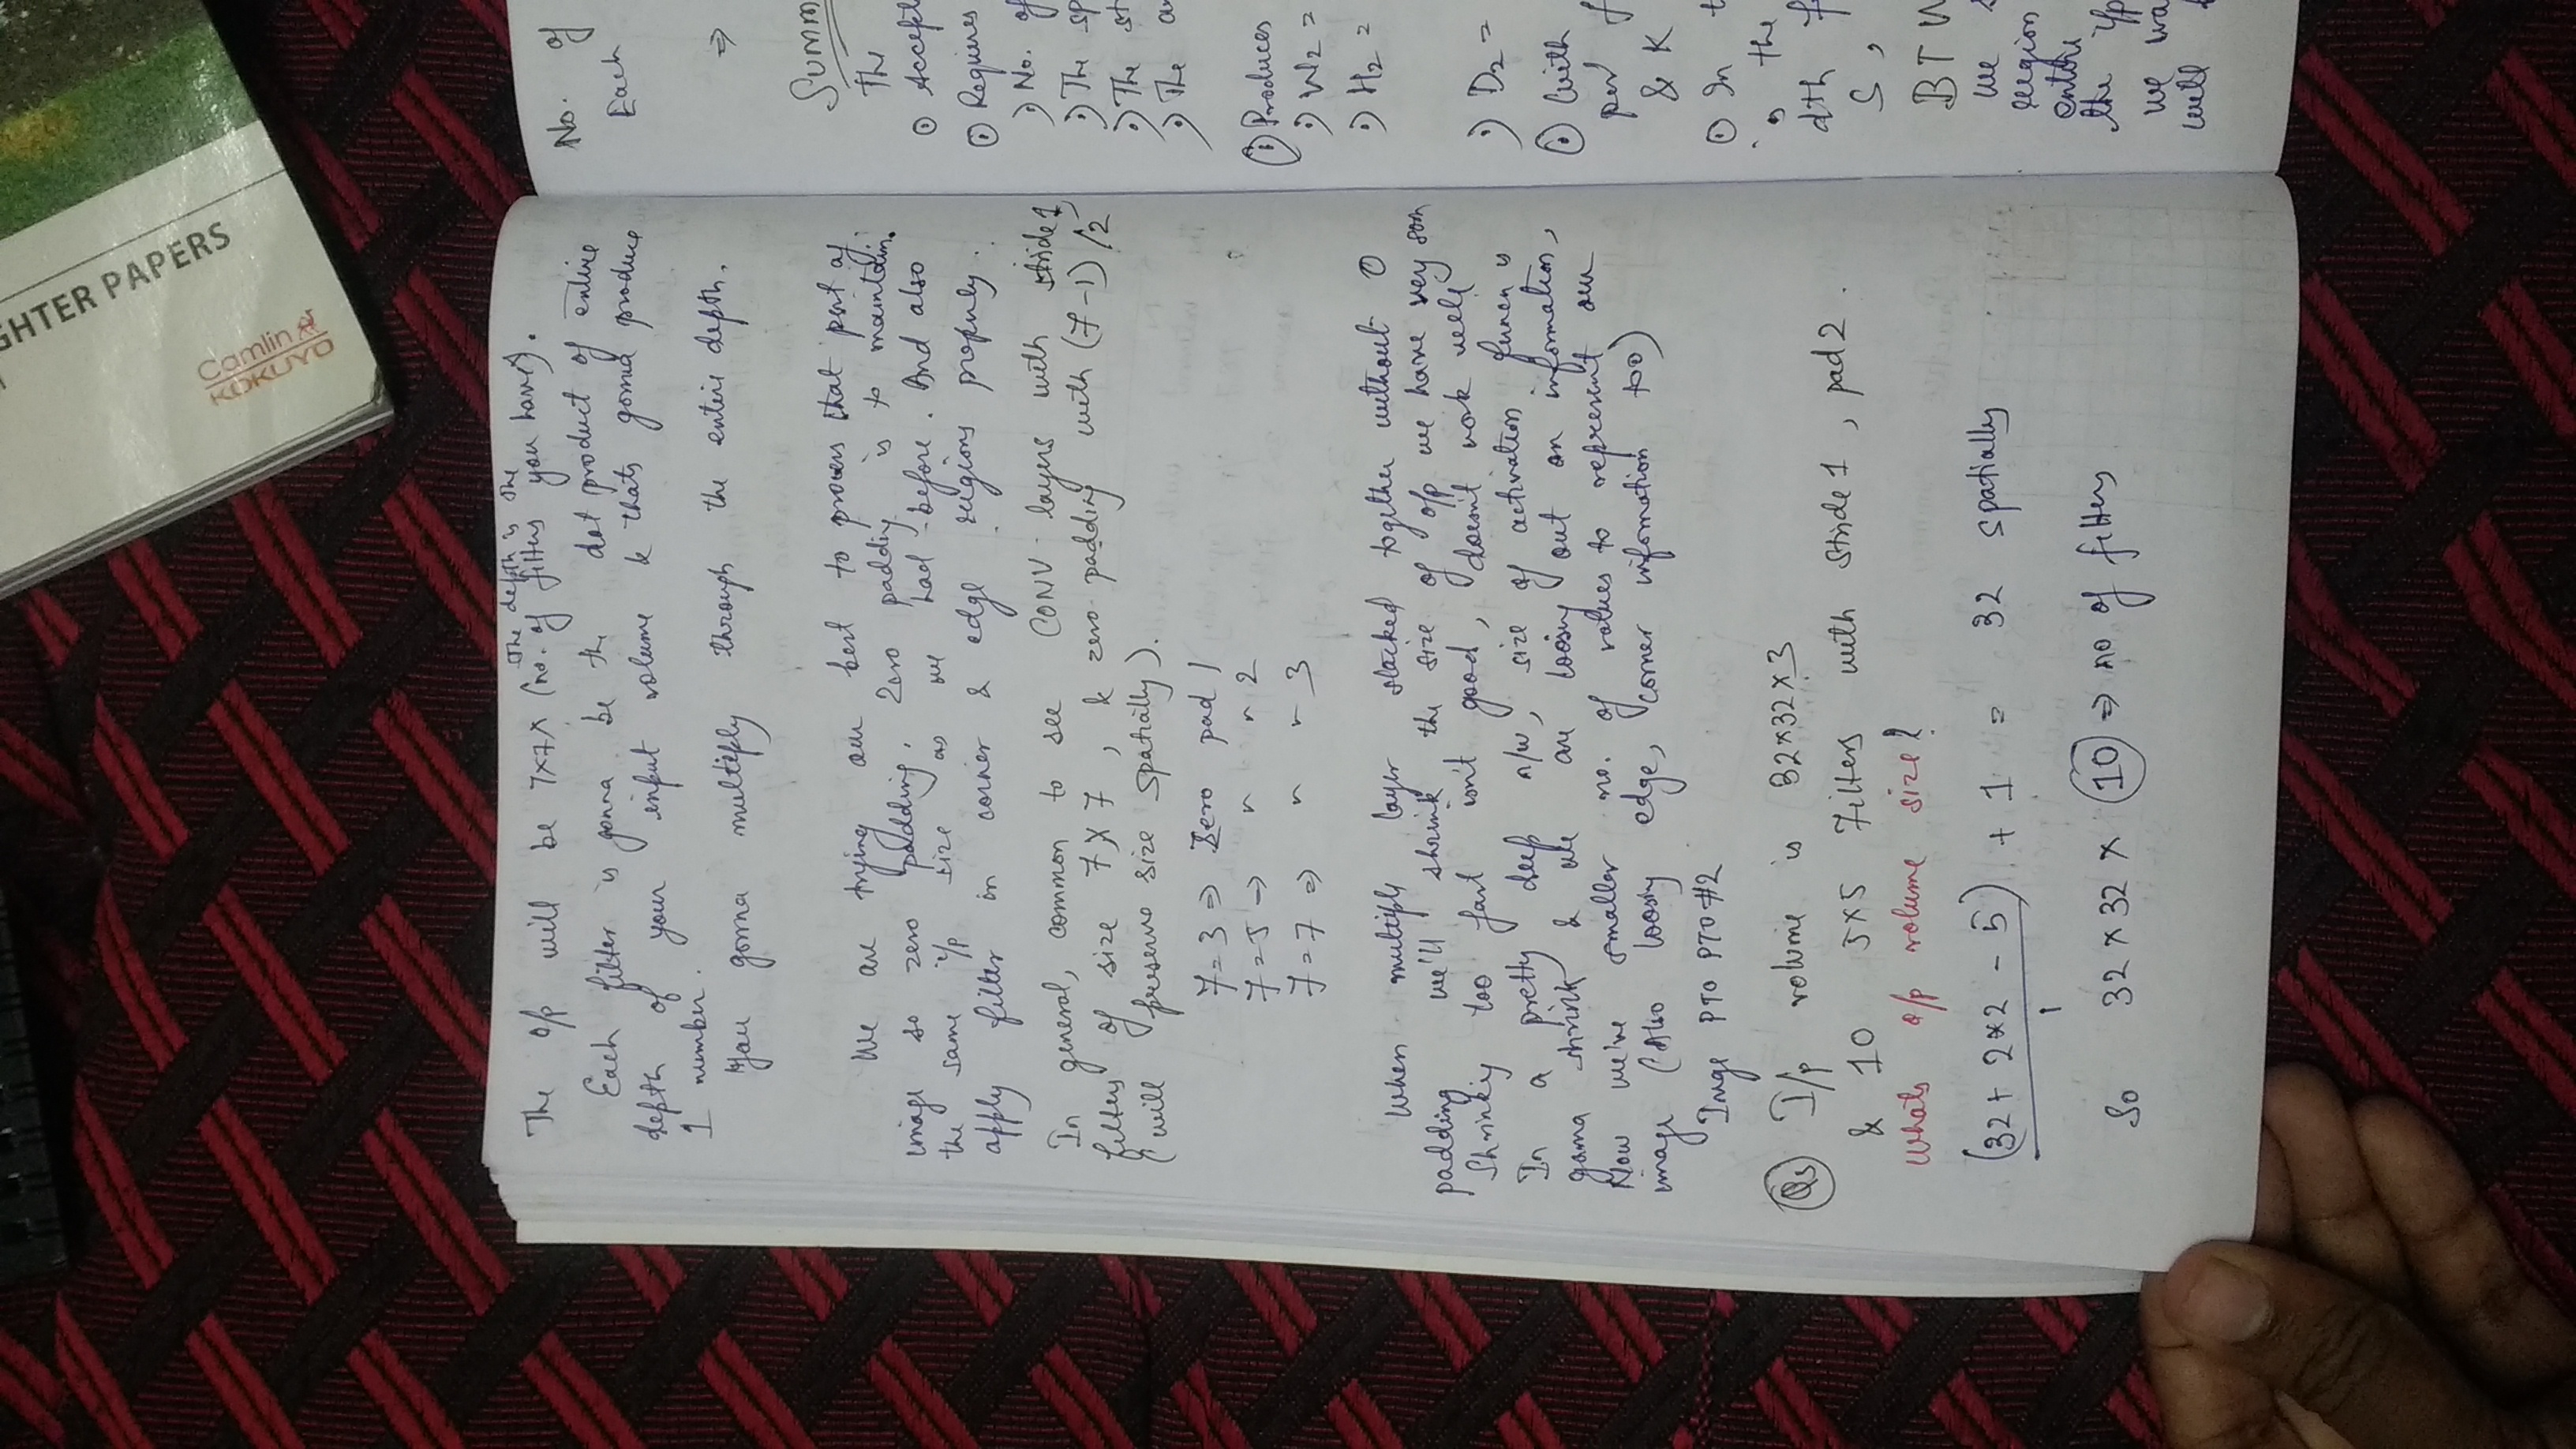 The o/p will be 7x7x (no. of filters you have).
The depth is the
Each filter is gonna be the dot product of entire
depth of your input volume & thats gonna produce
1 number.
You gonna multiply through the entire depth.
We are trying our best to process that part of
image so zero padding. Zero padding is to maintain
the same i/p size as we had before. And also
apply filter in corner & edge regions properly.
In general, common to see CONV layers with stride 1,
filters of size FXF, & zero-padding with (F-1)/2
(will preserve size spatially).
F=3 => Zero pad 1
F=5 => " " 2
F=7 => " " 3
When multiple layer stacked together without 0
padding we'll shrink the size of o/p we have very soon
Shrinkig too fast isn't good, doesn't work well
In a pretty deep n/w, size of activation funcn is
gonna shrink & we are loosing out on information,
Now we've smaller no. of values to represent our
image (Also loosing edge, corner information too)
Image PTO PTO #2
Qs I/p volume is 32x32x3
& 10 5x5 Filters with stride 1, pad 2.
Whats o/p volume size?
(32 + 2*2 - 5) + 1 = 32 spatially
1
So 32 x 32 x 10 => no of filters
No. of
Each
=>
Summ
The
Accept
Requires
No. of
The sp
The st
The
Produces
W2 =
H2 =
D2 =
With
per f
& K
In t
the
dth f
S,
BTW
we
region
entire
the i/p
we wa
will
GHTER PAPERS
Camlin
KOKUYO